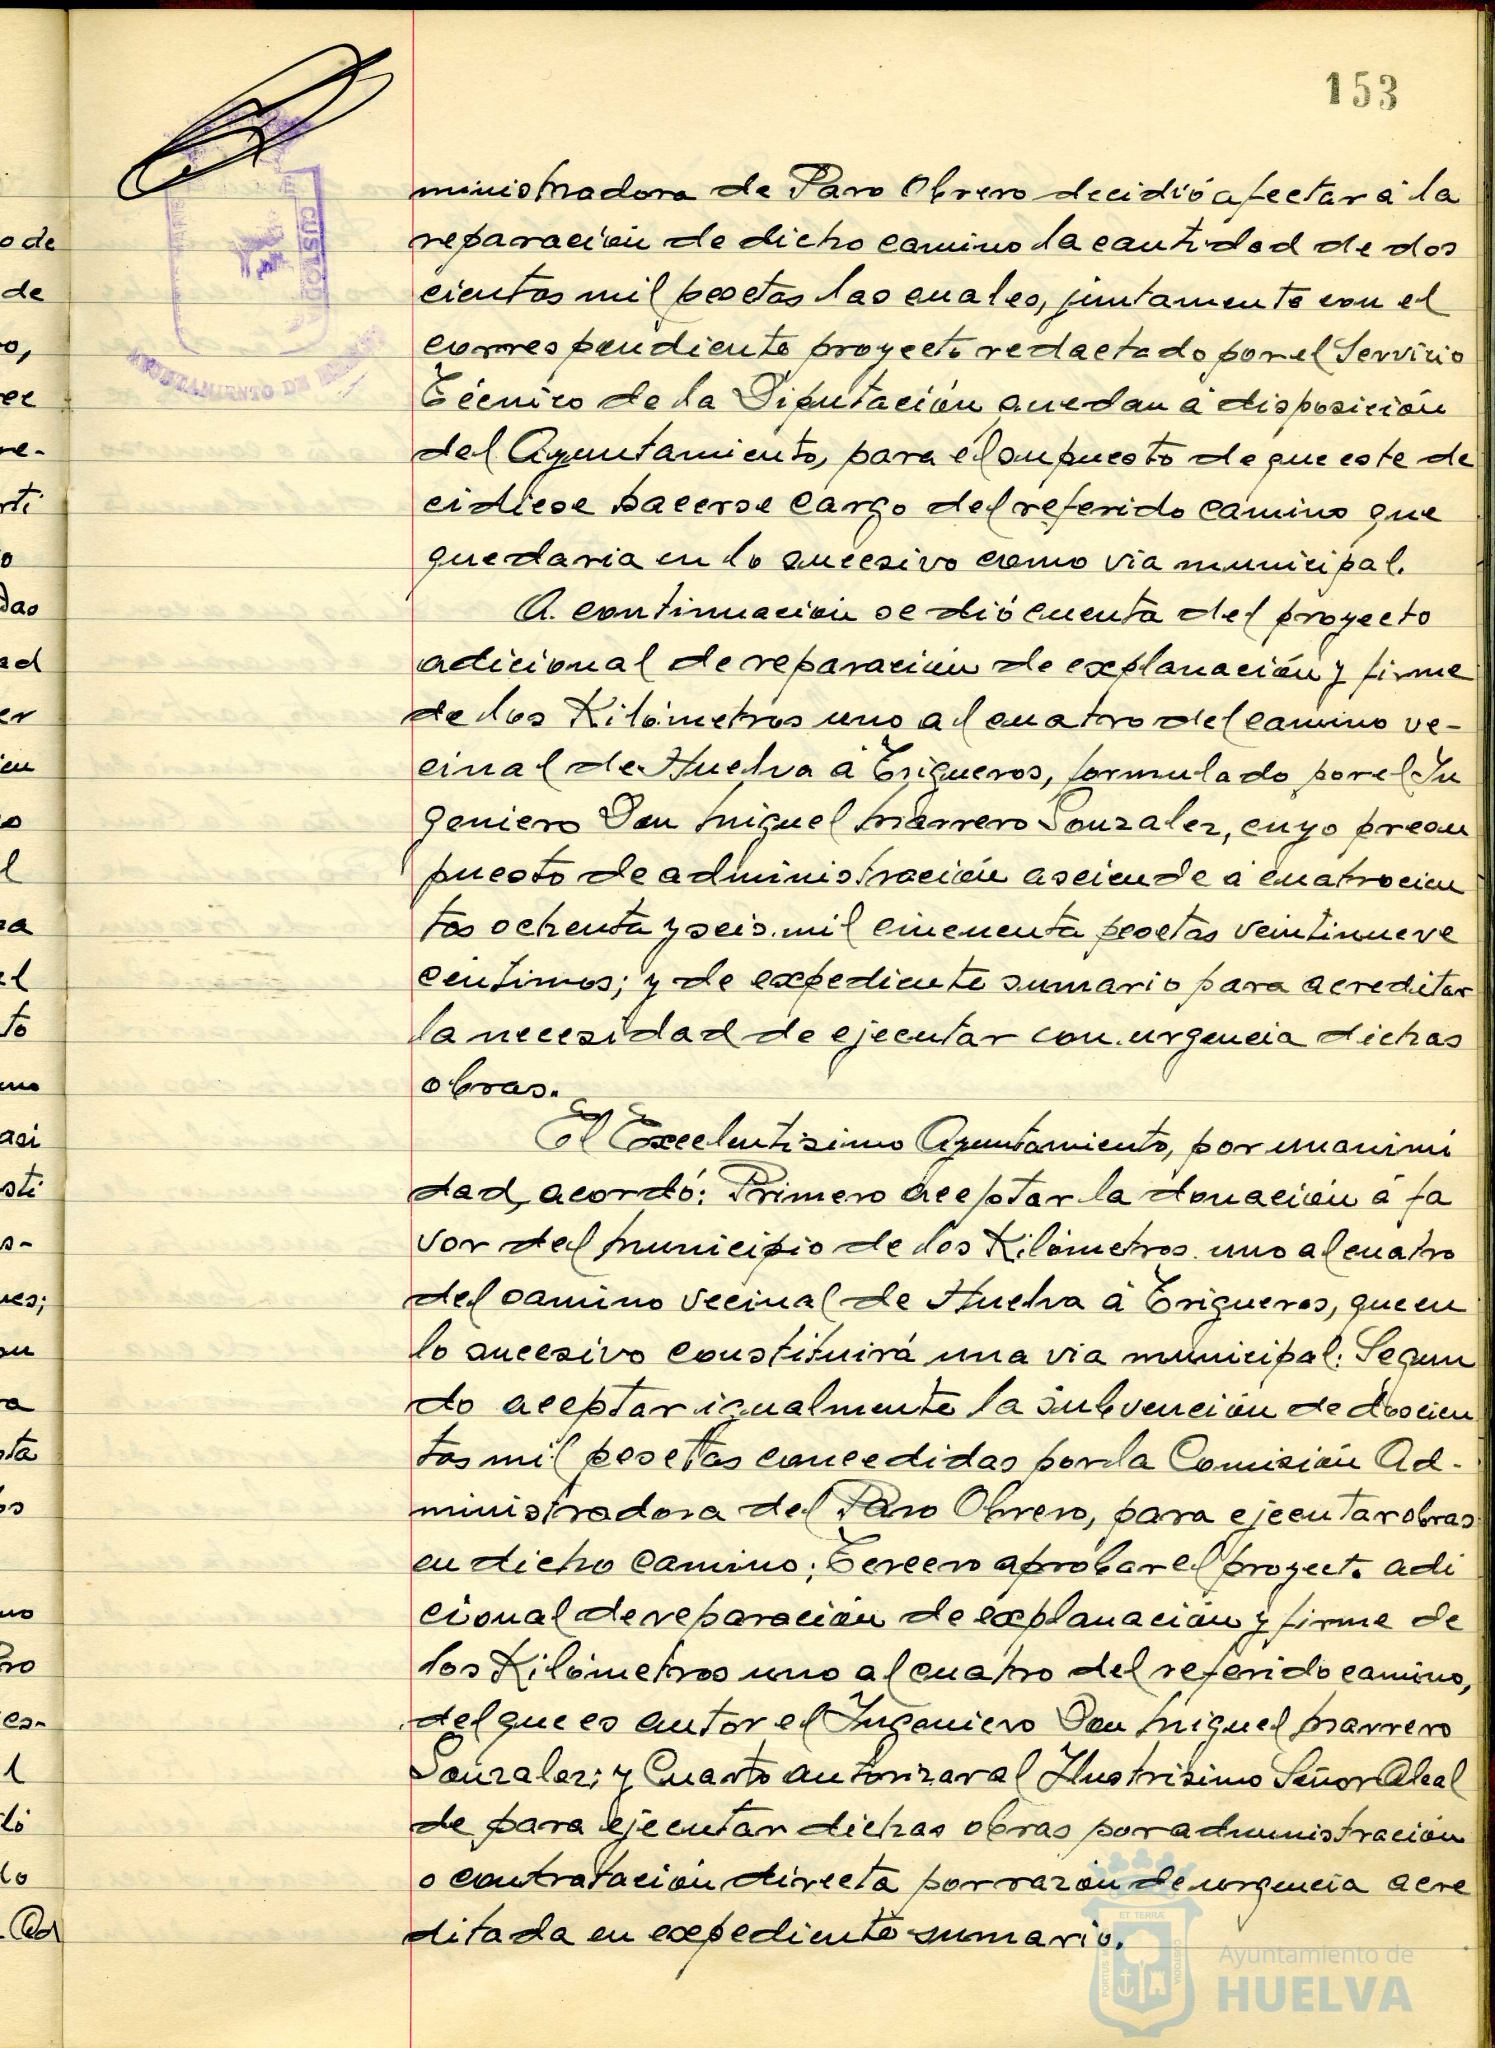 153
ministradora de Paro Obrero decidió afectar á la
reparación de dicho camino la cantidad de dos
cientas mil pesetas las cuales, juntamente con el
correspondiente proyecto redactado por el Servicio
Técnico de la Diputación quedan á disposición
del Ayuntamiento, para el supuesto de que este de
cidiese hacerse cargo del referido camino que
quedaria en lo sucesivo como via municipal.
A continuación se dió cuenta del proyecto
adicional de reparación de explanación y firme
de los Kilómetros uno al cuatro del camino ve-
cinal de Huelva á Trigueros, formulado por el In
geniero Don Miguel Marrero Gonzalez, cuyo presu
puesto de administración asciende á cuatrocien
tas ochenta y seis mil cincuenta pesetas veintinueve
centimos; y de expediente sumario para acreditar
la necesidad de ejecutar con urgencia dichas
obras.
El Excelentisimo Ayuntamiento, por unanimi
dad, acordó: Primero aceptar la donación á fa
vor del Municipio de los Kilómetros uno al cuatro
del camino vecinal de Huelva á Trigueros, que en
lo sucesivo constituirá una via municipal: Segun
do aceptar igualmente la subvención de doscien
tas mil pesetas concedidas por la Comisión Ad-
ministradora del Paro Obrero, para ejecutar obras
en dicho camino; Tercero aprobar el proyecto adi
cional de reparación de explanación y firme de
los Kilómetros uno al cuatro del referido camino,
del que es autor el Ingeniero Don Miguel Marrero
Gonzalez; y Cuarto autorizar al Ilustrisimo Señor Alcal
de para ejecutar dichas obras por administración
o contratación directa por razón de urgencia acre
ditada en expediente sumario.
CUSTODIA
AYUNTAMIENTO DE
Ayuntamiento de
HUELVA